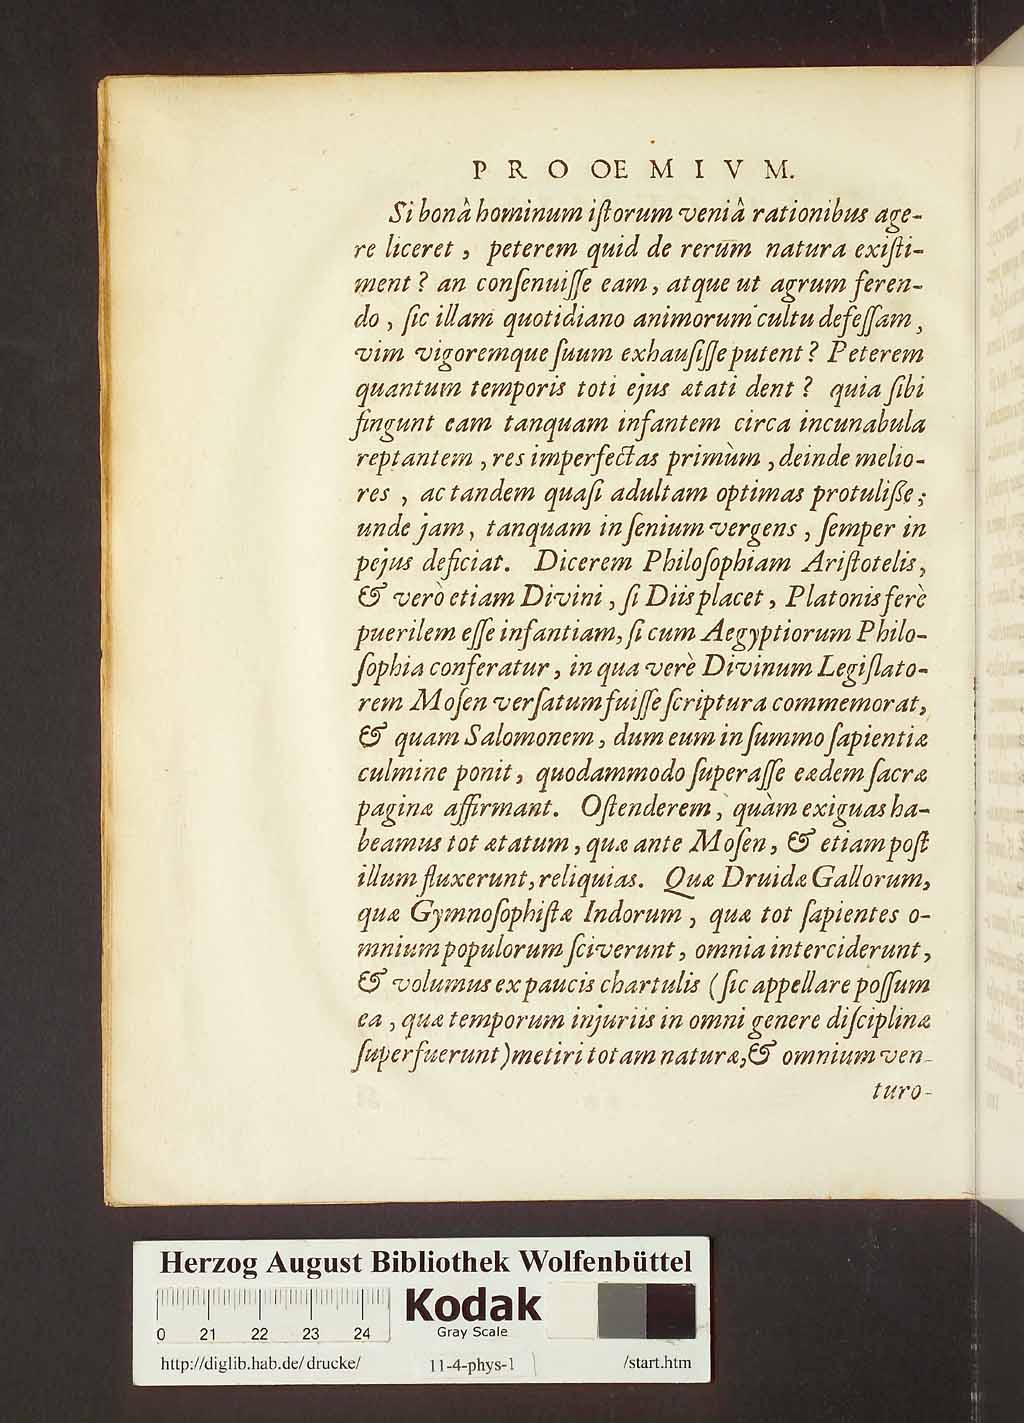 PROOEMIVM.
Si bonâ hominum iſtorum veniâ rationibus age-
re liceret, peterem quid de rerum natura exiſti-
ment? an conſenuiſſe eam, atque ut agrum feren-
do, ſic illam quotidiano animorum cultu defeſſam,
vim vigoremque ſuum exhauſiſſe putent? Peterem
quantum temporis toti ejus ætati dent? quia ſibi
fingunt eam tanquam infantem circa incunabula
reptantem, res imperfectas primùm, deinde melio-
res, ac tandem quaſi adultam optimas protuliße;
unde jam, tanquam in ſenium vergens, ſemper in
pejus deficiat. Dicerem Philoſophiam Ariſtotelis,
& verò etiam Divini, ſi Diis placet, Platonis ferè
puerilem eſſe infantiam, ſi cum Aegyptiorum Philo-
ſophia conferatur, in qua verè Divinum Legiſlato-
rem Moſen verſatum fuiſſe ſcriptura commemorat,
& quam Salomonem, dum eum in ſummo ſapientiæ
culmine ponit, quodammodo ſuperaſſe eædem ſacræ
paginæ affirmant. Oſtenderem, quàm exiguas ha-
beamus tot ætatum, quæ ante Moſen, & etiam poſt
illum fluxerunt, reliquias. Quæ Druidæ Gallorum,
quæ Gymnoſophiſtæ Indorum, quæ tot ſapientes o-
mnium populorum ſciverunt, omnia interciderunt,
& volumus ex paucis chartulis (ſic appellare poſſum
ea, quæ temporum injuriis in omni genere diſciplinæ
ſuperfuerunt) metiri totam naturæ, & omnium ven-
turo-
Herzog August Bibliothek Wolfenbüttel
0 21 22 23 24
Kodak
Gray Scale
http://diglib.hab.de/drucke/ 11-4-phys-1 /start.htm